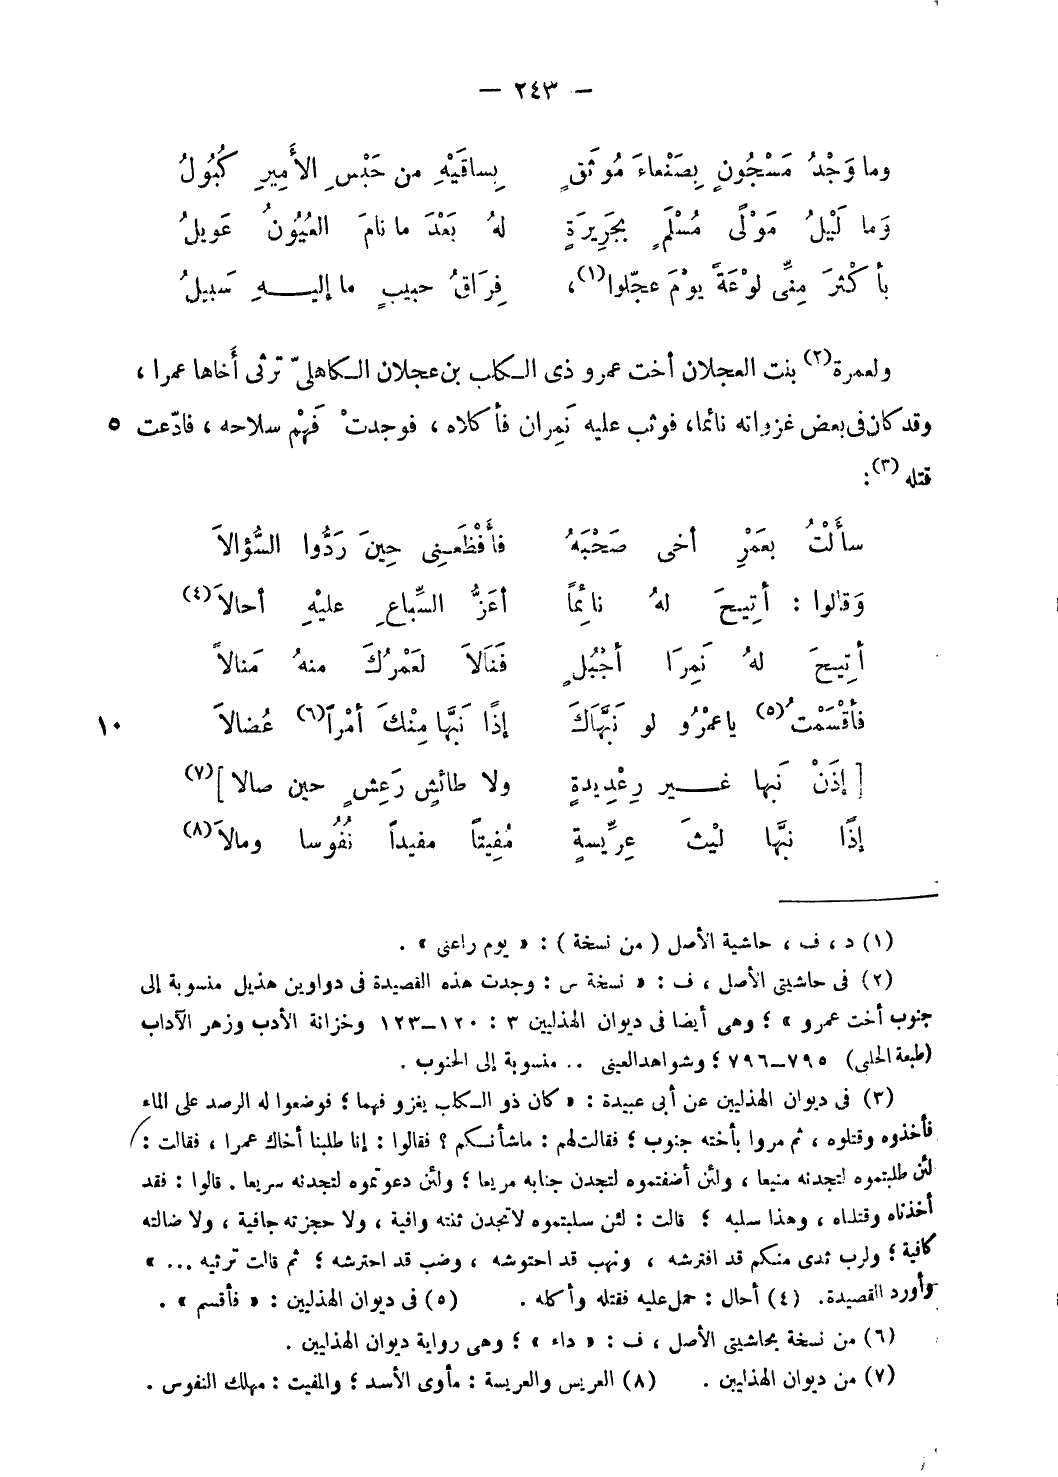 — ٢٤٣ —
وما وَجْدُ مَسْجُونٍ بِصَنْعاءَ مُوثَقٍ بِساقَيْهِ من حَبْسِ الأَمِيرِ كُبُولُ
وَما لَيْلُ مَوْلًى مُسْلَمٍ بجَرِيرَةٍ لهُ بَعْدَ ما نامَ العُيُونُ عَويلُ
بأَكْثَرَ مِنِّى لوْعَةً يوْمَ عجّلوا(١)، فِرَاقُ حبيبٍ ما إليهِ سَبيلُ
ولعمرة(٢) بنت العجلان أخت عمرو ذى الكلب بن عجلان الكاهلىّ ترثى أَخاها عمرا ،
وقد كان فى بعض غزواته نائما، فوثب عليه نَمِران فأكلاه ، فوجدتْ فَهْم سلاحه ، فادّعت ٥
قتله(٣) :
سأَلْتُ بعَمْرٍ أخى صَحْبَهُ فأَفْظَعنِى حِينَ رَدُّوا السُّؤالاَ
وَقالوا : أتِيحَ لهُ نائماً أعَزُّ السِّباعِ عليْهِ أحالاَ(٤)
أتِيحَ لهُ نَمِرَا أجْبُلٍ فَنَالاَ لعَمْرُكَ منهُ مَنالاً
فأقْسَمْتُ(٥) ياعمْرُو لو نَبَّهاكَ إذًا نَبَّها مِنْكَ أمْراً(٦) عُضالاَ ١٠
[ إذَنْ نَبها غيرَ رِعْدِيدةٍ ولا طائشٍ رَعِشٍ حين صالا ](٧)
إذًا نبَّها ليْثَ عِرِّيسةٍ مُفِيتاً مفيداً نُفُوسا ومالاَ(٨)
(١) د ، ف ، حاشية الأصل ( من نسخة ) : « يوم راعنى » .
(٢) فى حاشيتى الأصل ، ف : « نسخة س : وجدت هذه القصيدة فى دواوين هذيل منسوبة إلى
جنوب أخت عمرو » ؛ وهى أيضا فى ديوان الهذليين ٣ : ١٢٠–١٢٣ وخزانة الأدب وزهر الآداب
(طبعة الحلبى) ٧٩٥–٧٩٦ ؛ وشواهد العينى .. منسوبة إلى الجنوب .
(٣) فى ديوان الهذليين عن أبى عبيدة : « كان ذو الكلب يغزو فهما ؛ فوضعوا له الرصد على الماء
فأخذوه وقتلوه ، ثم مروا بأخته جنوب ؛ فقالت لهم : ماشأنكم ؟ فقالوا : إنا طلبنا أخاك عمرا ، فقالت :
لئن طلبتموه لتجدنه منيعا ، ولئن أضفتموه لتجدن جنابه مريعا ؛ ولئن دعوتموه لتجدنه سريعا . قالوا : فقد
أخذناه وقتلناه ، وهذا سلبه ؛ قالت : لئن سلبتموه لاتجدن ثنته وافية ، ولا حجزته جافية ، ولا ضالته
كافية ؛ ولرب ثدى منكم قد افترشه ، ونهب قد احتوشه ، وضب قد احترشه ؛ ثم قالت ترثيه ... »
وأورد القصيدة. (٤) أحال : حمل عليه فقتله وأكله . (٥) فى ديوان الهذليين : « فأقسم » .
(٦) من نسخة بحاشيتى الأصل ، ف : « داء » ؛ وهى رواية ديوان الهذليين .
(٧) من ديوان الهذليين . (٨) العريس والعريسة : مأوى الأسد ؛ والمفيت : مهلك النفوس .